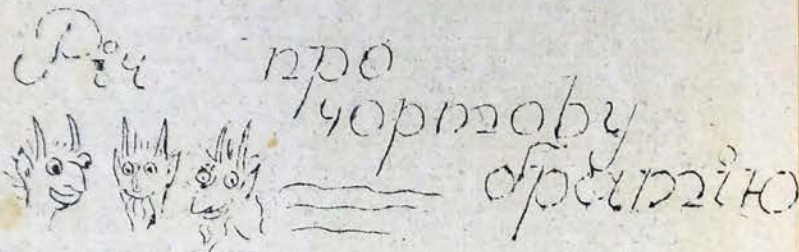 Річ про
чортову
братію